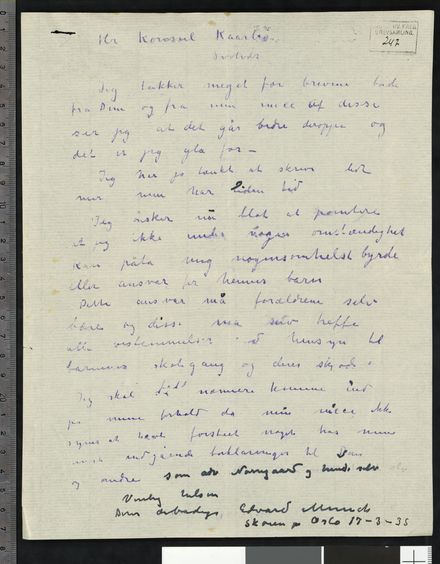 Hr Konsul Kaarbø.
BREVSAMLING.
247
Jeg takker meget for brevene både
fra Dem og fra min niece Af disse
ser jeg at det går bedre deroppe og
det er jeg gla for —
Jeg har jo tænkt at skrive
mer men har liden tid
Jeg ønsker nå blot at pointere
at jeg ikke under nogen omstændighet
kan påta mig nogensomhelst byrde
eller ansvar for hennes barn
Dette ansvar må forældrene selv
bære og disse må selv træffe
alle bestemmelser hensyn til
barnenes skolegang og deres
Jeg skal nærmere komme ind
på mine forhold da min niece ikke
synes at have forståt noget
indgående forklaringer til Dem
og andre som adv Nørregaard og hende selv
Venlig hilsen
Deres ærbødige Edvard Munch
Skøien pr Oslo 17-3-35